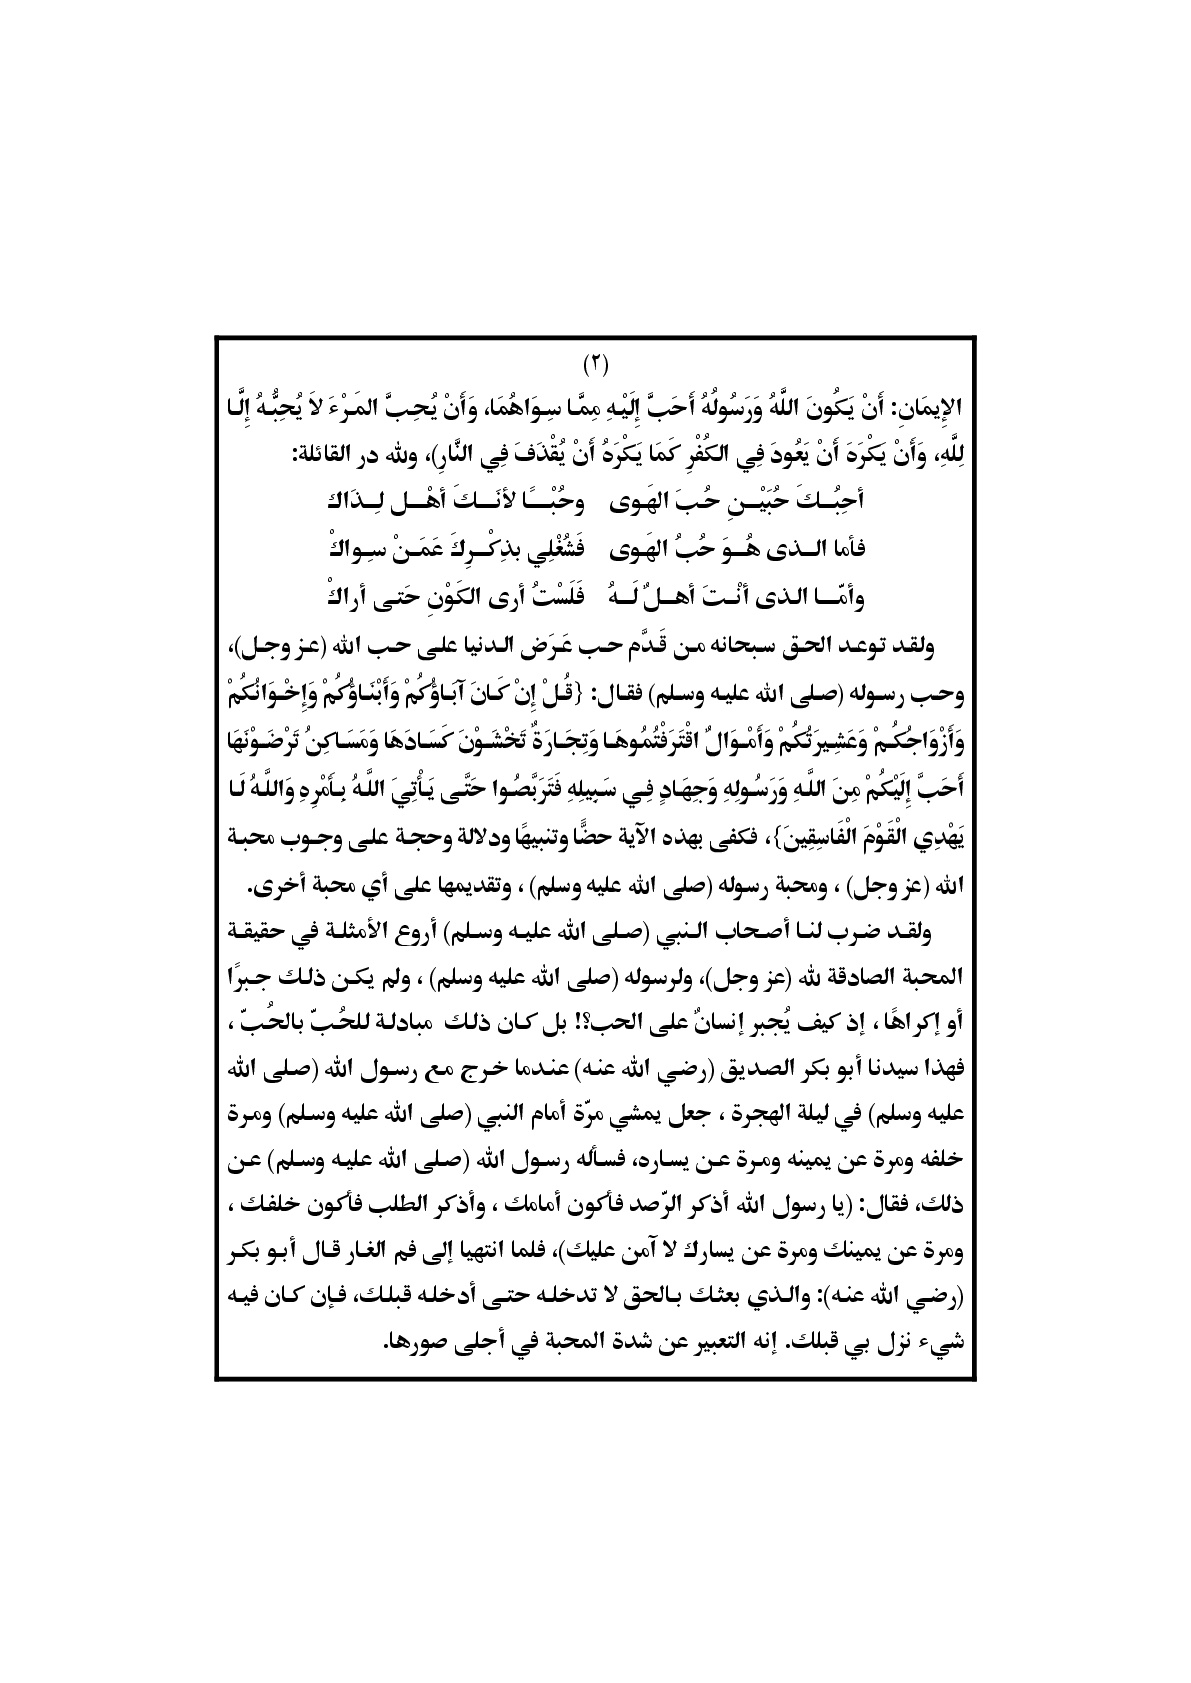 (٢)
الإِيمَانِ: أَنْ يَكُونَ اللَّهُ وَرَسُولُهُ أَحَبَّ إِلَيْهِ مِمَّا سِوَاهُمَا، وَأَنْ يُحِبَّ المَرْءَ لاَ يُحِبُّهُ إِلَّا
لِلَّهِ، وَأَنْ يَكْرَهَ أَنْ يَعُودَ فِي الكُفْرِ كَمَا يَكْرَهُ أَنْ يُقْذَفَ فِي النَّارِ)، ولله در القائلة:
أحِبُكَ حُبَيْنِ حُبَ الهَوى وحُبْاً لأنَكَ أهْل لِذَاك
فأما الذى هُوَ حُبُ الهَوى فَشُغْلِي بذِكْرِكَ عَمَنْ سِواكْ
وأمّا الذى أنْتَ أهلٌ لَهُ فَلَسْتُ أرى الكَوْنِ حَتى أراكْ
ولقد توعد الحق سبحانه من قَدَّم حب عَرَض الدنيا على حب الله (عز وجل)،
وحب رسوله (صلى الله عليه وسلم) فقال: {قُلْ إِنْ كَانَ آبَاؤُكُمْ وَأَبْنَاؤُكُمْ وَإِخْوَانُكُمْ
وَأَزْوَاجُكُمْ وَعَشِيرَتُكُمْ وَأَمْوَالٌ اقْتَرَفْتُمُوهَا وَتِجَارَةٌ تَخْشَوْنَ كَسَادَهَا وَمَسَاكِنُ تَرْضَوْنَهَا
أَحَبَّ إِلَيْكُمْ مِنَ اللَّهِ وَرَسُولِهِ وَجِهَادٍ فِي سَبِيلِهِ فَتَرَبَّصُوا حَتَّى يَأْتِيَ اللَّهُ بِأَمْرِهِ وَاللَّهُ لَا
يَهْدِي الْقَوْمَ الْفَاسِقِينَ}، فكفى بهذه الآية حضًّا وتنبيهًا ودلالة وحجة على وجوب محبة
الله (عز وجل) ، ومحبة رسوله (صلى الله عليه وسلم) ، وتقديمها على أي محبة أخرى.
ولقد ضرب لنا أصحاب النبي (صلى الله عليه وسلم) أروع الأمثلة في حقيقة
المحبة الصادقة لله (عز وجل)، ولرسوله (صلى الله عليه وسلم) ، ولم يكن ذلك جبرًا
أو إكراهًا ، إذ كيف يُجبر إنسانٌ على الحب؟! بل كان ذلك مبادلة للحُبّ بالحُبّ ،
فهذا سيدنا أبو بكر الصديق (رضي الله عنه) عندما خرج مع رسول الله (صلى الله
عليه وسلم) في ليلة الهجرة ، جعل يمشي مرّة أمام النبي (صلى الله عليه وسلم) ومرة
خلفه ومرة عن يمينه ومرة عن يساره، فسأله رسول الله (صلى الله عليه وسلم) عن
ذلك، فقال: (يا رسول الله أذكر الرّصد فأكون أمامك ، وأذكر الطلب فأكون خلفك ،
ومرة عن يمينك ومرة عن يسارك لا آمن عليك)، فلما انتهيا إلى فم الغار قال أبو بكر
(رضي الله عنه): والذي بعثك بالحق لا تدخله حتى أدخله قبلك، فإن كان فيه
شيء نزل بي قبلك. إنه التعبير عن شدة المحبة في أجلى صورها.